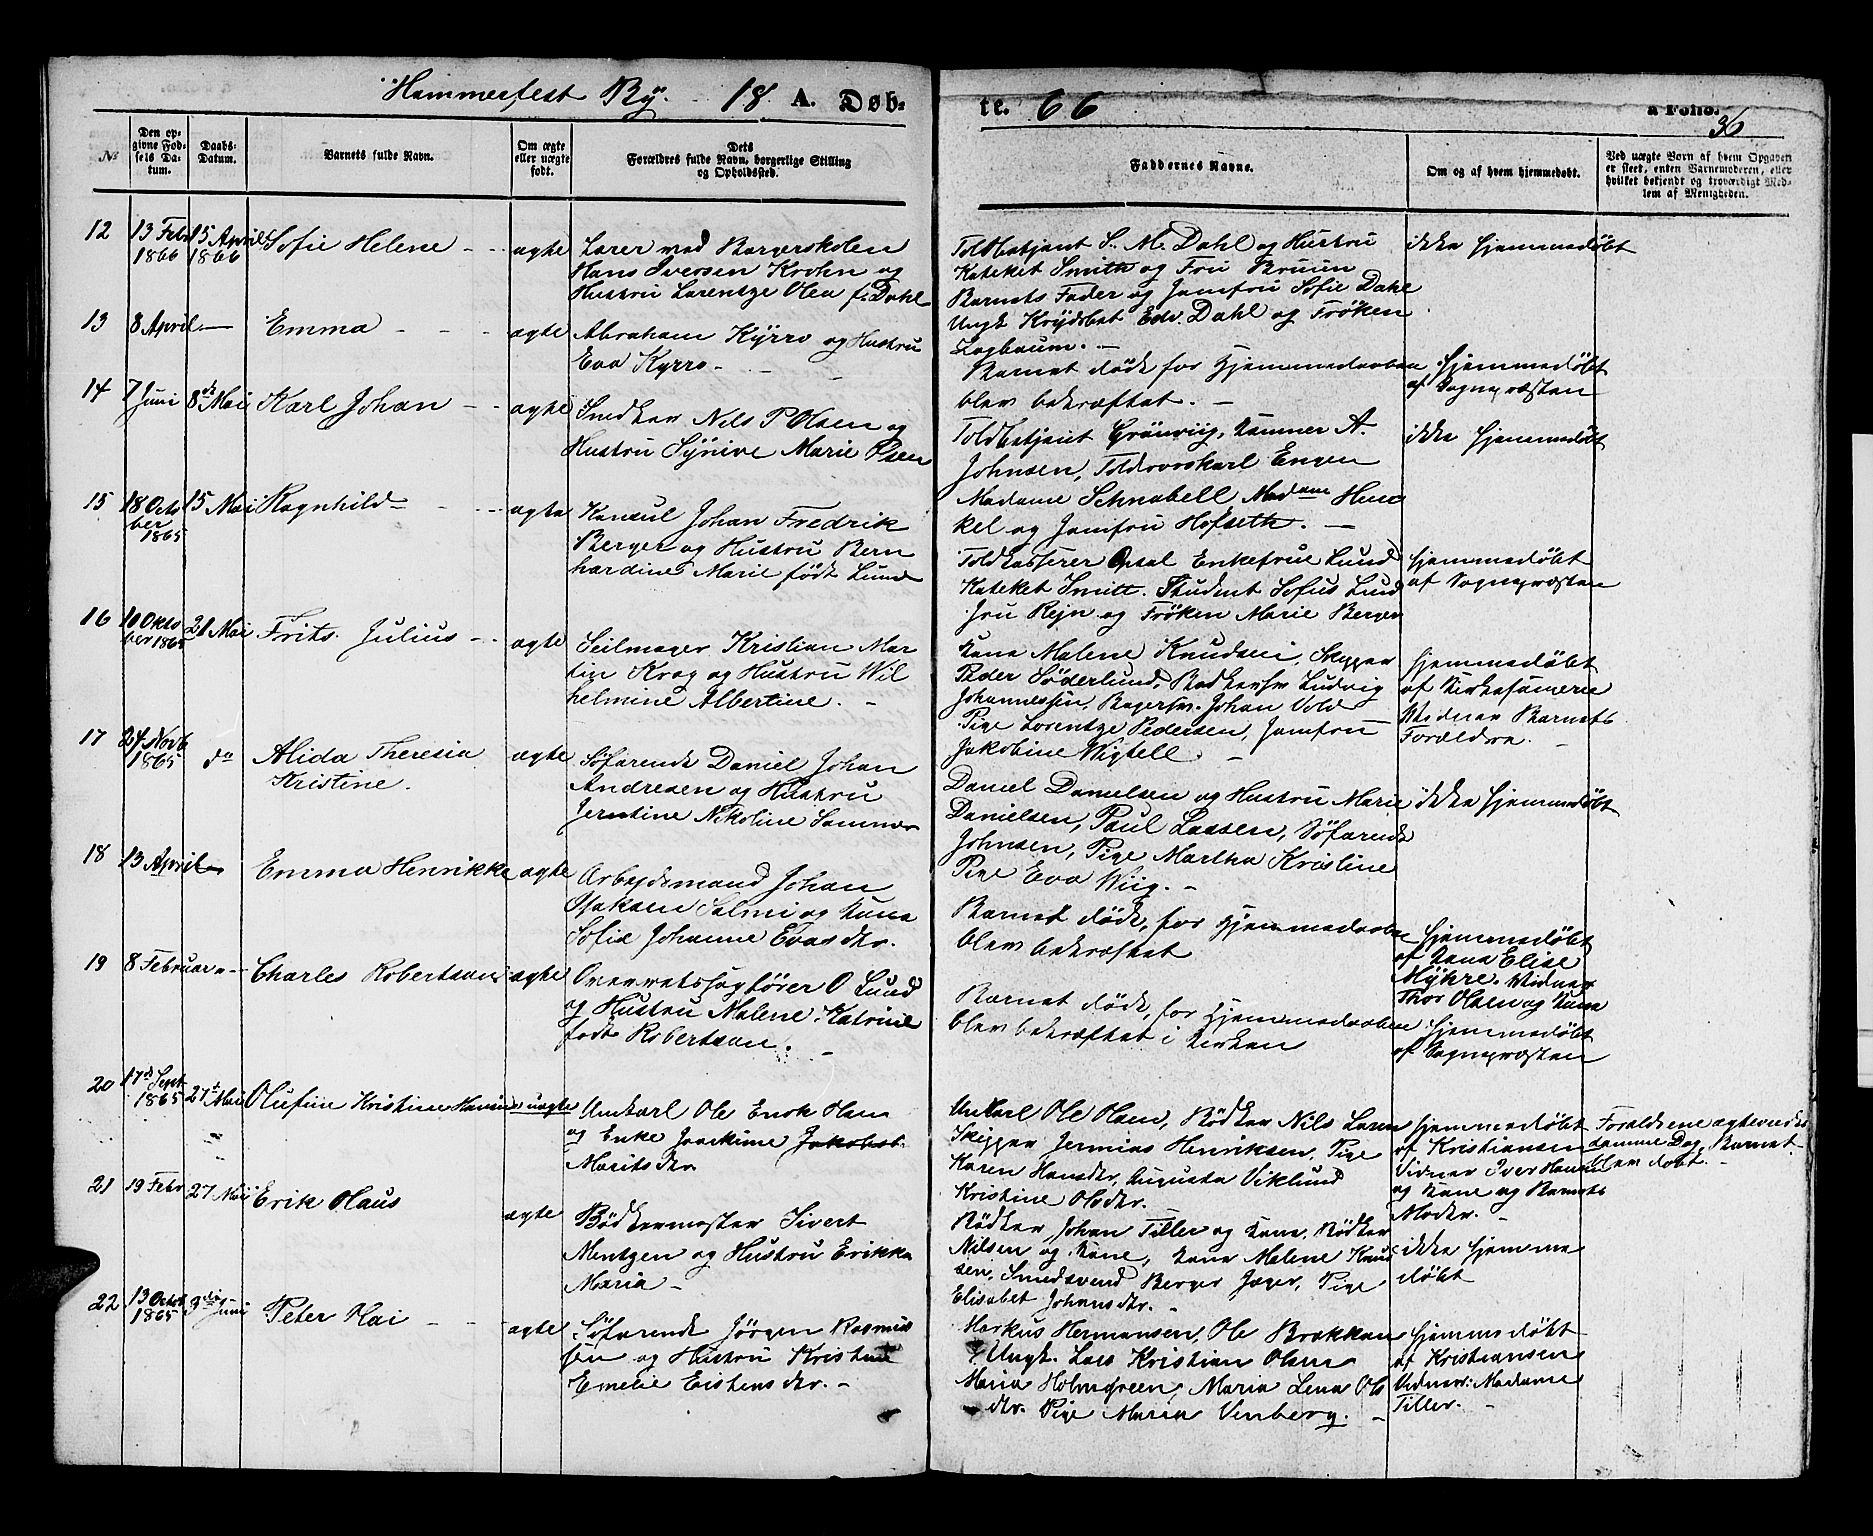 Hammerfest By. 18 A. Døb-
te. 66 a Folio.
36
№
Den op-
givne Fød-
sels Da-
tum.
Daabs-
Datum.
Barnets fulde Navn.
Om ægte
eller uægte
født.
Dets
Forældres fulde Navn, borgerlige Stilling
og Opholdssted.
Faddernes Navne.
Om og af hvem hjemmedøbt.
Ved uægte Børn af hvem Opgaven
er skeet, enten Barnemoderen, eller
hvilket bekjendt og troværdigt Med-
lem af Menigheden.
12 13 Febr 1866 15 April 1866 Sofie Helene - - ægte
Lærer ved Borgerskolen
Hans Iversen Krohn og
Hustru Lorentze Olea f. Dahl
Toldbetjent S. M. Dahl og Hustru
Kateket Smith og Fru Bruun
Barnets Fader og Jomfru Sofie Dahl
Ungk Krydsbet Edv. Dahl og Frøken
Zogbaum. -
ikke hjemmedøbt
13 8 April - Emma - - - ægte
Abraham Kyrro og Hustru
Eva Kyrro -
Barnet døde før Hjemmedaaben
blev bekræftet. -
hjemmedøbt
af Sognepræsten
14 7 Juni 8de Mai Karl Johan - - ægte
Snedker Nils P Olsen og
Hustru Synive Marie Olsen
Toldbetjent Grönviig, Kamner A.
Johnsen, Toldrorskarl Engen
Madame Schnabell Madame Hen
kel og Jomfru Hofseth. -
ikke hjemmedøbt
15 18 Octo
ber 1865 15 Mai Ragnhild - - ægte
Konsul Johan Fredrik
Berger og Hustru Bern
hardine Marie født Lund
Toldkasserer Opsal Enkefrue Lund
Kateket Smitt. Student Sofus Lund
Fru Rejn og Frøken Marie Berger
hjemmedøbt
af Sognepræsten
16 10 Okto
ber 1865 21 Mai Frits Julius - - ægte
Seilmager Kristian Mar
tin Krog og Hustru Wil
helmine Albertine. -
Kone Malene Knudsen, Skipper
Peder Söderlund, Bødkersv Ludvig
Johannessen, Bagersv. Johan Vold
Pige Lorentze Pedersen, Jomfru
Jakobine Wigtell -
hjemmedøbt
Widner Barnets
Forældre. -
17 24 Novb 1865 do Alida Theresia
Kristine. ægte
Søfarende Daniel Johan
Andresen og Hustru
Jerntine Nikoline Sommer
Daniel Danielsen og Hustru Marie
Danielsen, Paul Lassen, Søfarende
Johnsen, Pige Martha Kristine
Pige Eva Wiig. -
ikke hjemmedøbt
18 13 April - Emma Henrikke ægte
Arbejdsmand Johan
Isaksen Salmi og Kone
Sofia Johanne Evasdtr.
Barnet døde, før Hjemmedaaben
blev bekræftet
hjemmedøbt
af Kone Elise
Myhre. Widner
Thor Olsen og Kone
19 8 Februar - Charles Robertson ægte
Overretssagfører O Lund
og Hustru Malene Katrine
født Robertson. -
Barnet døde, før Hjemmedaaben
blev bekræftet i Kirken
hjemmedøbt
af Sognepræsten
20 17de Sept 1865 27t Mai Olufine Kristine Hansine uægte
Unkarl Ole Enok Olsen
og Enke Joackime Jakobsd.
Moritsdtr.
Unkarl Ole Olsen, Bødker Nils Larsen
Skipper Jermias Henriksen, Pige
Karen Hansdtr, Augusta Viklund
Kristine Olsdtr.
hjemmedøbt
af Kristiansen
Vidner Iver Hansen
og Kone og Barnets
Moder. -
Forældrene ægteviedes
samme Dag, Barnet
blev døbt. -
21 19 Febr 27 Mai Erik Olaus ægte
Bødkermester Sivert
Mentzen og Hustru Erikka
Maria -
Bødker Johan Tiller og Kone, Bødker
Nilsen og Kone, Kone Malene Knud
sen, Smedsvend Berger Jæger, Pige
Elisabet Johansdtr. -
ikke hjemme
døbt
22 13 Octob 1865 3die Juni Peter Olai - - - ægte
Søfarende Jørgen Rasmus
sen og Hustru Kristine
Emelie Eistensdtr. -
Markus Hermansen, Ole Brakkan
Ungk. Lars Kristian Olsen
Maria Holmgreen, Maria Lena Ols
dtr. Pige Maria Vinberg. -
hjemmedøbt
af Kristiansen
Vidner: Madame
Tiller. -